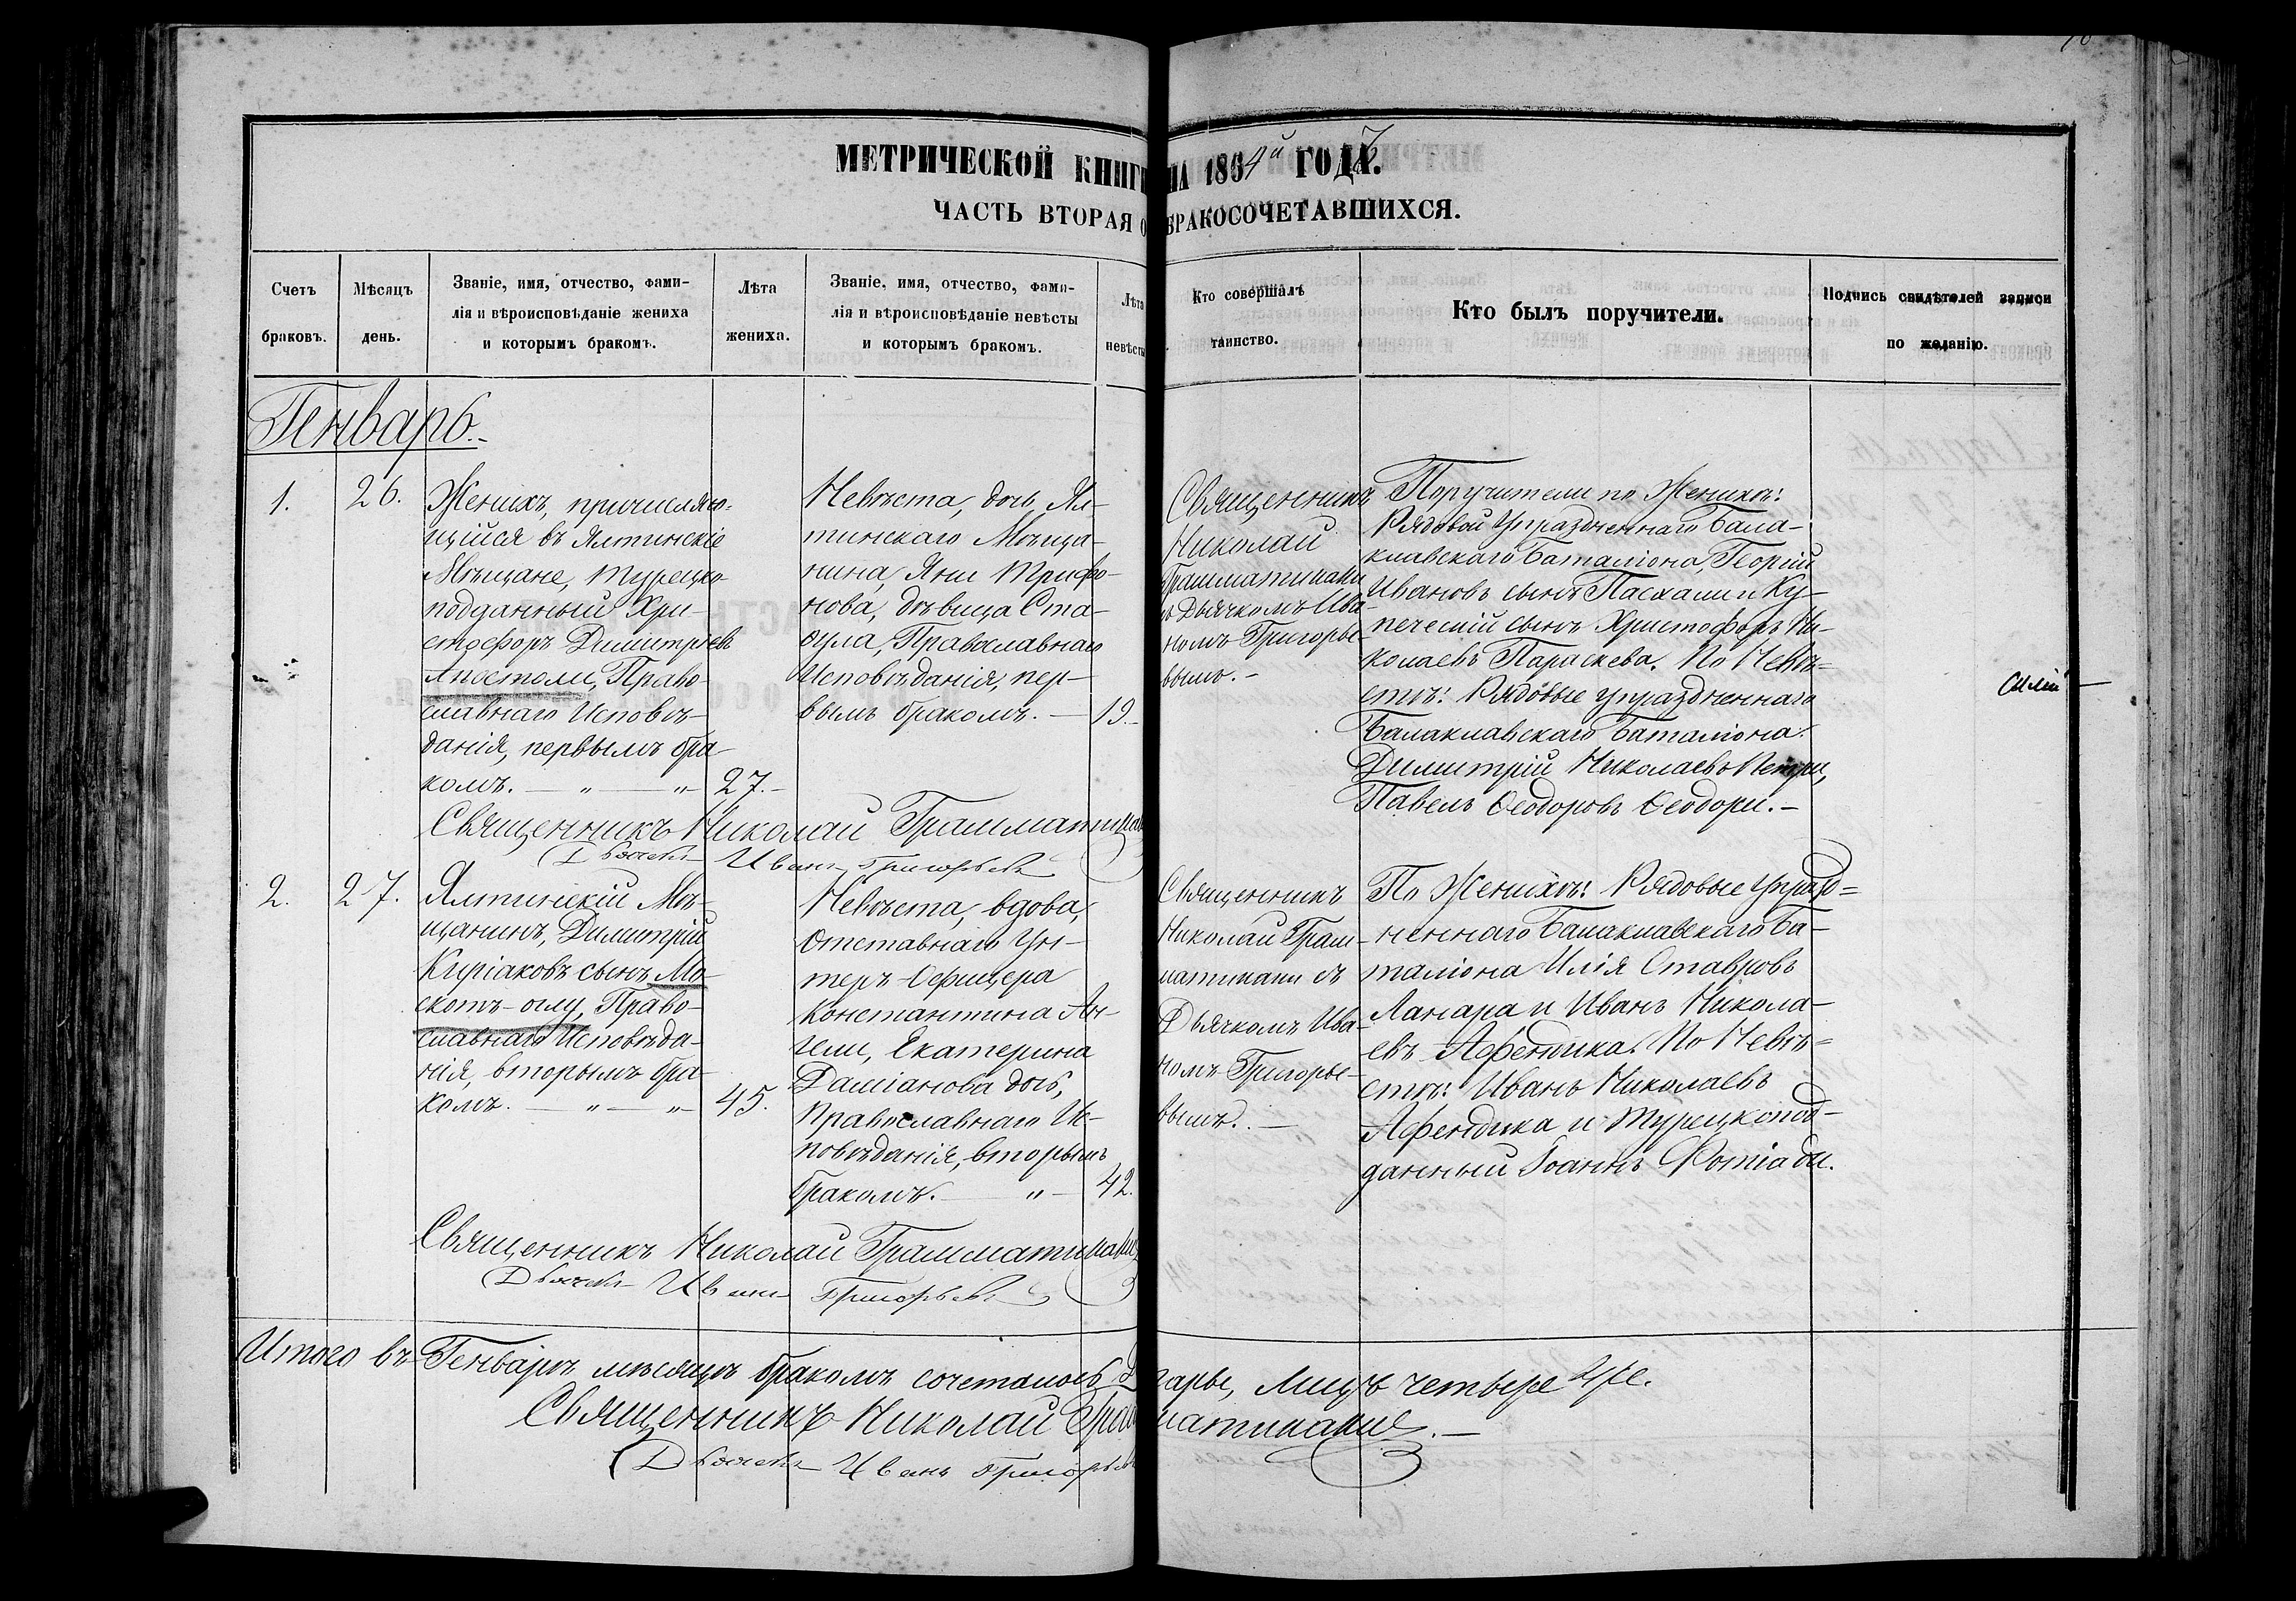 МЕТРИЧЕСКОЙ КНИГИ НА 1864й ГОДЪ.
ЧАСТЬ ВТОРАЯ О БРАКОСОЧЕТАВШИХСЯ.
Счетъ
браковъ.
Мѣсяцъ
день.
Званіе, имя, отчество, фами-
лія и вѣроисповѣданіе жениха
и которымъ бракомъ.
Лѣта
жениха.
Званіе, имя, отчество, фами-
лія и вѣроисповѣданіе невѣсты
и которымъ бракомъ.
Лѣта
невѣсты
Кто совершалъ
таинство.
Кто былъ поручители.
Подпись свидѣтелей записи
по желанію.
Генварь.
1.
26.
Женихъ, причисляю-
щійся въ Ялтинскіе
Мѣщане, Турецко-
подданный Хри-
стофоръ Димитріевъ
Апостоли, Право-
славнаго Исповѣ-
данія, первымъ бра-
комъ. — „ — „
27.-
Невѣста, дочь Ял-
тинскаго Мѣща-
нина, Яни Трифо-
нова, дѣвица Ста-
Православнаго
Исповѣданія, пер-
вымъ бракомъ. —
19.-
Священникъ
Николай
Грамматикаки
съ Дьячкомъ Ива-
номъ Григорье-
вымъ.-
Поручители по Женихѣ:
Рядовой упраздненнаго Бала-
клавскаго Баталіона, Георгій
Ивановъ сынъ Пасхали и Ку-
печескій сынъ Христофоръ Ни-
колаевъ Параскева. По Невѣ-
стѣ: Рядовые упраздненнаго
Балаклавскаго Баталіона:
Димитрій Николаевъ Петри,
Павелъ Ѳеодоровъ Ѳеодори.-
Священникъ Николай Грамматикаки
Дьячекъ Иванъ Григорьевъ
2.
27.
Ялтинскій Мѣ-
щанинъ, Димитрій
Киріаковъ сынъ Мо-
скотъ-оглу, Право-
славнаго Исповѣда-
нія, вторымъ бра-
комъ. — „ — „
45.
Невѣста, вдова,
Отставнаго Ун-
теръ-Офицера
Константина Ан-
гели, Екатерина
Даміанова дочь,
Православнаго Ис-
повѣданія, вторымъ
бракомъ. — „ —
42.
Священникъ
Николай Грам-
матикаки съ
Дьячкомъ Ива-
номъ Григорье-
вымъ. —
По Женихѣ: Рядовые упразд-
неннаго Балаклавскаго Ба-
таліона Илія Ставровъ
Ланара и Иванъ Никола-
евъ Афендика. По Невѣ-
стѣ: Иванъ Николаевъ
Афендика и Турецкопод-
данный Іоаннъ Фотіади.
Священникъ Николай Грамматикаки
Дьячекъ Иванъ Григорьевъ
Итого въ Генварѣ мѣсяцѣ бракомъ сочеталось 2 пары, Лицъ четыре 4ре.
Священникъ Николай Грамматикаки.—
Дьячекъ Иванъ Григорьевъ